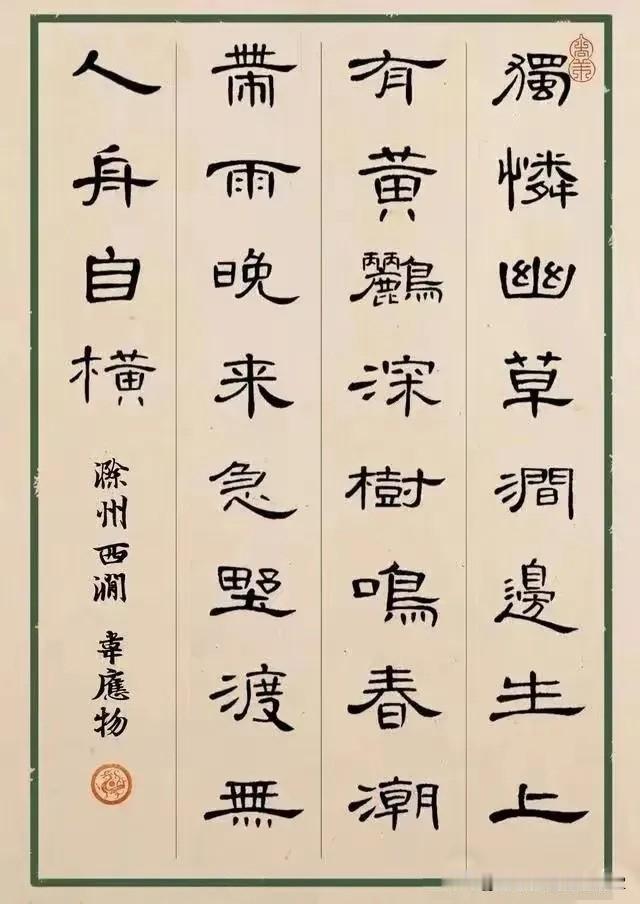 獨憐幽草澗邊生上
有黃鸝深樹鳴春潮
帶雨晚来急野渡無
人舟自橫
滁州西澗 韋應物